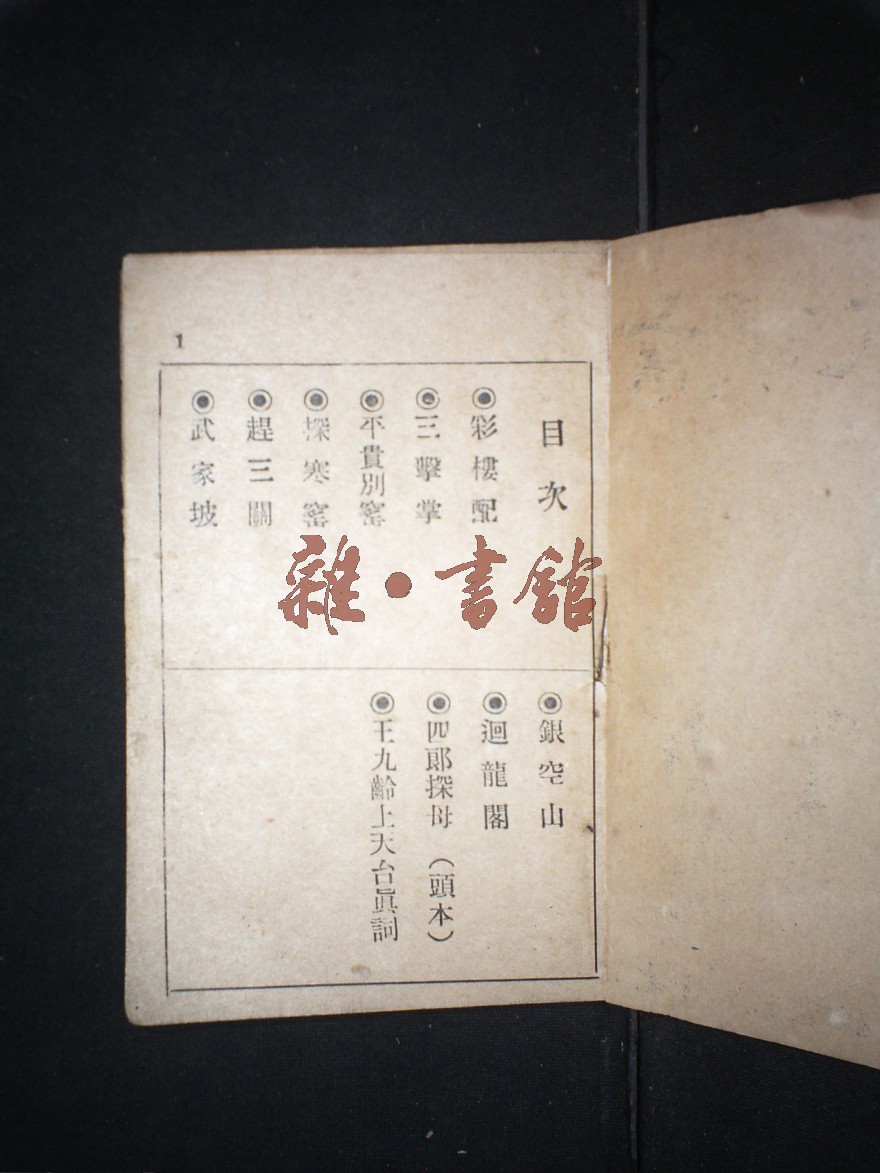 1
目次
◉彩樓配
◉三擊掌
◉平貴別窰
◉探寒窰
◉趕三關
◉武家坡
◉銀空山
◉迴龍閣
◉四郎探母（頭本）
◉王九齡上天台眞詞
雜•書館